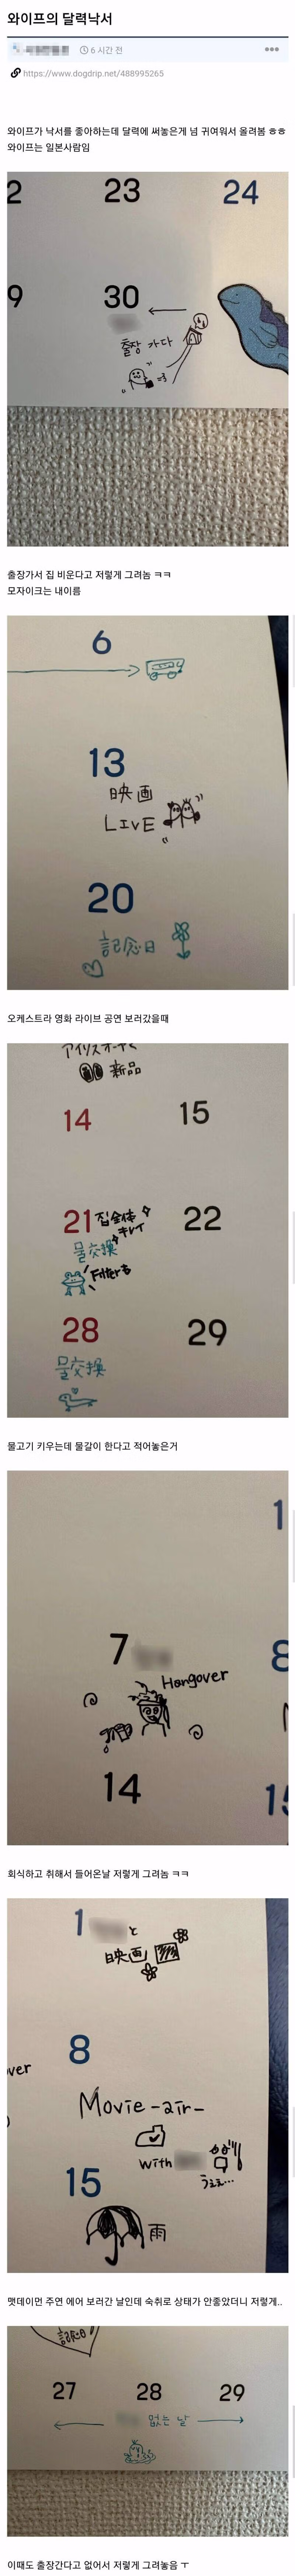 와이프의 달력낙서
6 시간 전
https://www.dogdrip.net/488995265
와이프가 낙서를 좋아하는데 달력에 써놓은게 넘 귀여워서 올려봄 ㅎㅎ
와이프는 일본사람임
2 23 24
9 30
출장 가다
출장가서 집 비운다고 저렇게 그려놈 ㅋㅋ
모자이크는 내이름
6
13
映画
LIVE
20
記念日
오케스트라 영화 라이브 공연 보러갔을때
新品
14 15
21 집全体 22
キレイ
물交換
Filterも
28 29
물交換
물고기 키우는데 물갈이 한다고 적어놓은거
1
7 8
Hangover
14 15
회식하고 취해서 들어온날 저렇게 그려놈 ㅋㅋ
1 と
映画
8
ver
Movie -air-
with
うぇぇ…
15
雨
맷데이먼 주연 에어 보러간 날인데 숙취로 상태가 안좋았더니 저렇게..
記念日
27 28 29
없는 날
이때도 출장간다고 없어서 저렇게 그려놓음 ㅜ